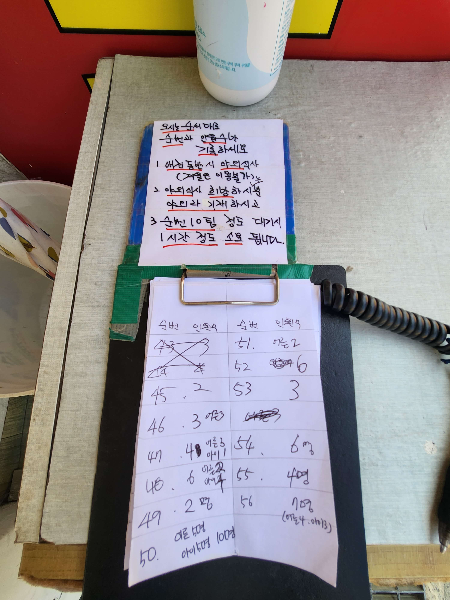 오시는 순서대로
순번과 인원수가
기록하세요
1. 애견동반시 야외식사
(겨울엔 이용불가)
2. 야외식사 희망하시면
야외라 기재하시고
3. 순번 10팀 정도 대기시
1시간 정도 소요 됩니다.
순번 인원수 순번 인원수
43 3 51. 어른2
44 4 52 6
45. 2 53 3
46 . 3 어른3
47 . 4 어른3 아이1 54. 6명
48 . 6 55. 4명
49 . 2명 56 7명
(어른4. 아이3)
50. 어른5명
아이5명 10명